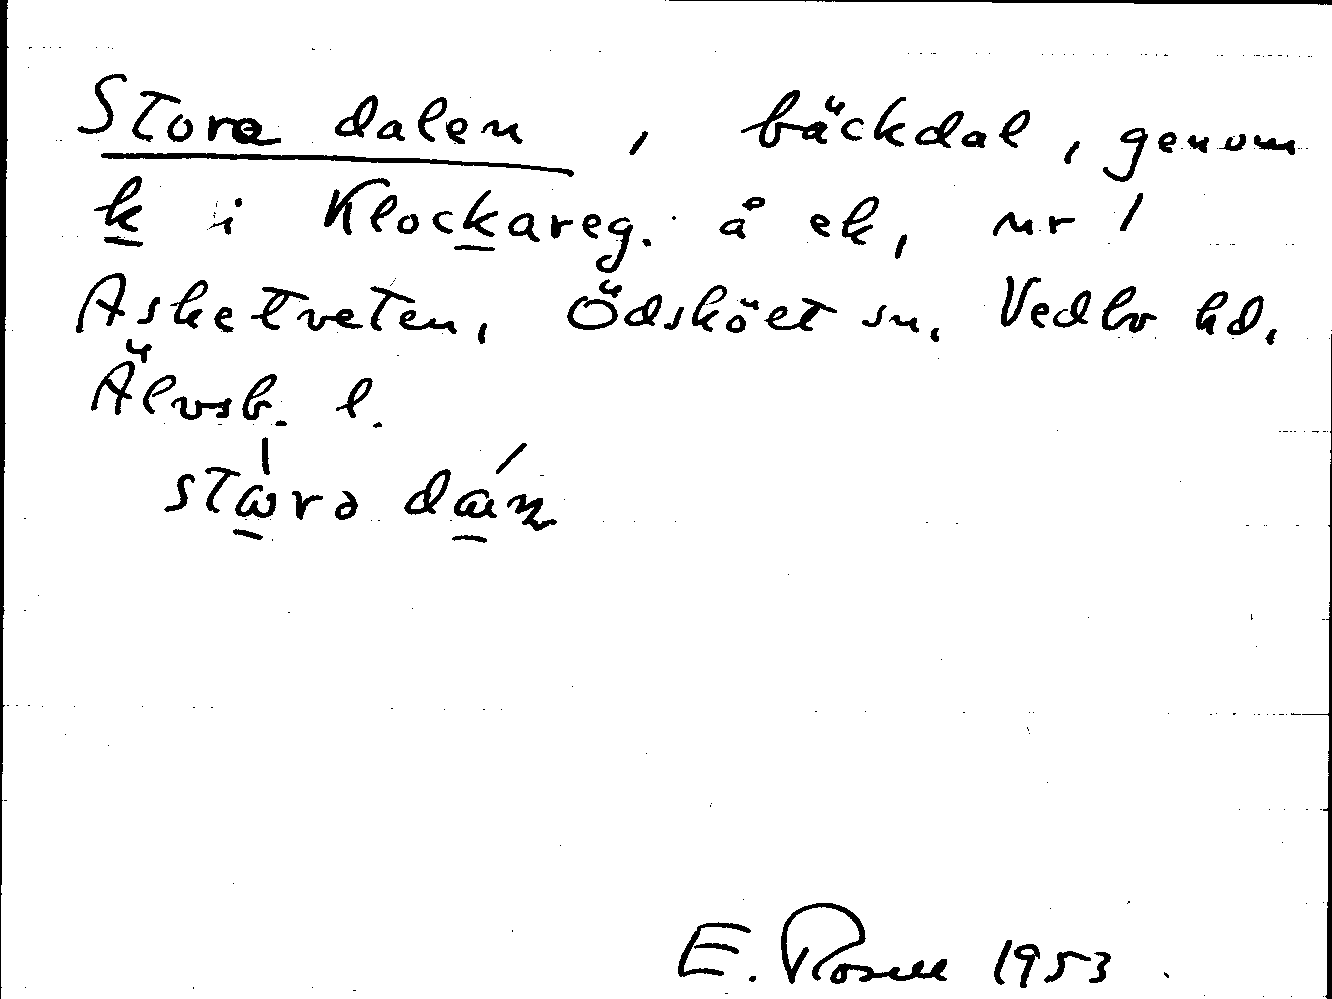 Stora dalen, bäckdal, genom
k i Klockareg. å ek, nr 1
Asketveten, Ödsköet sn. Vedbo hd.
Älvsb. l.
E. Rosell 1953